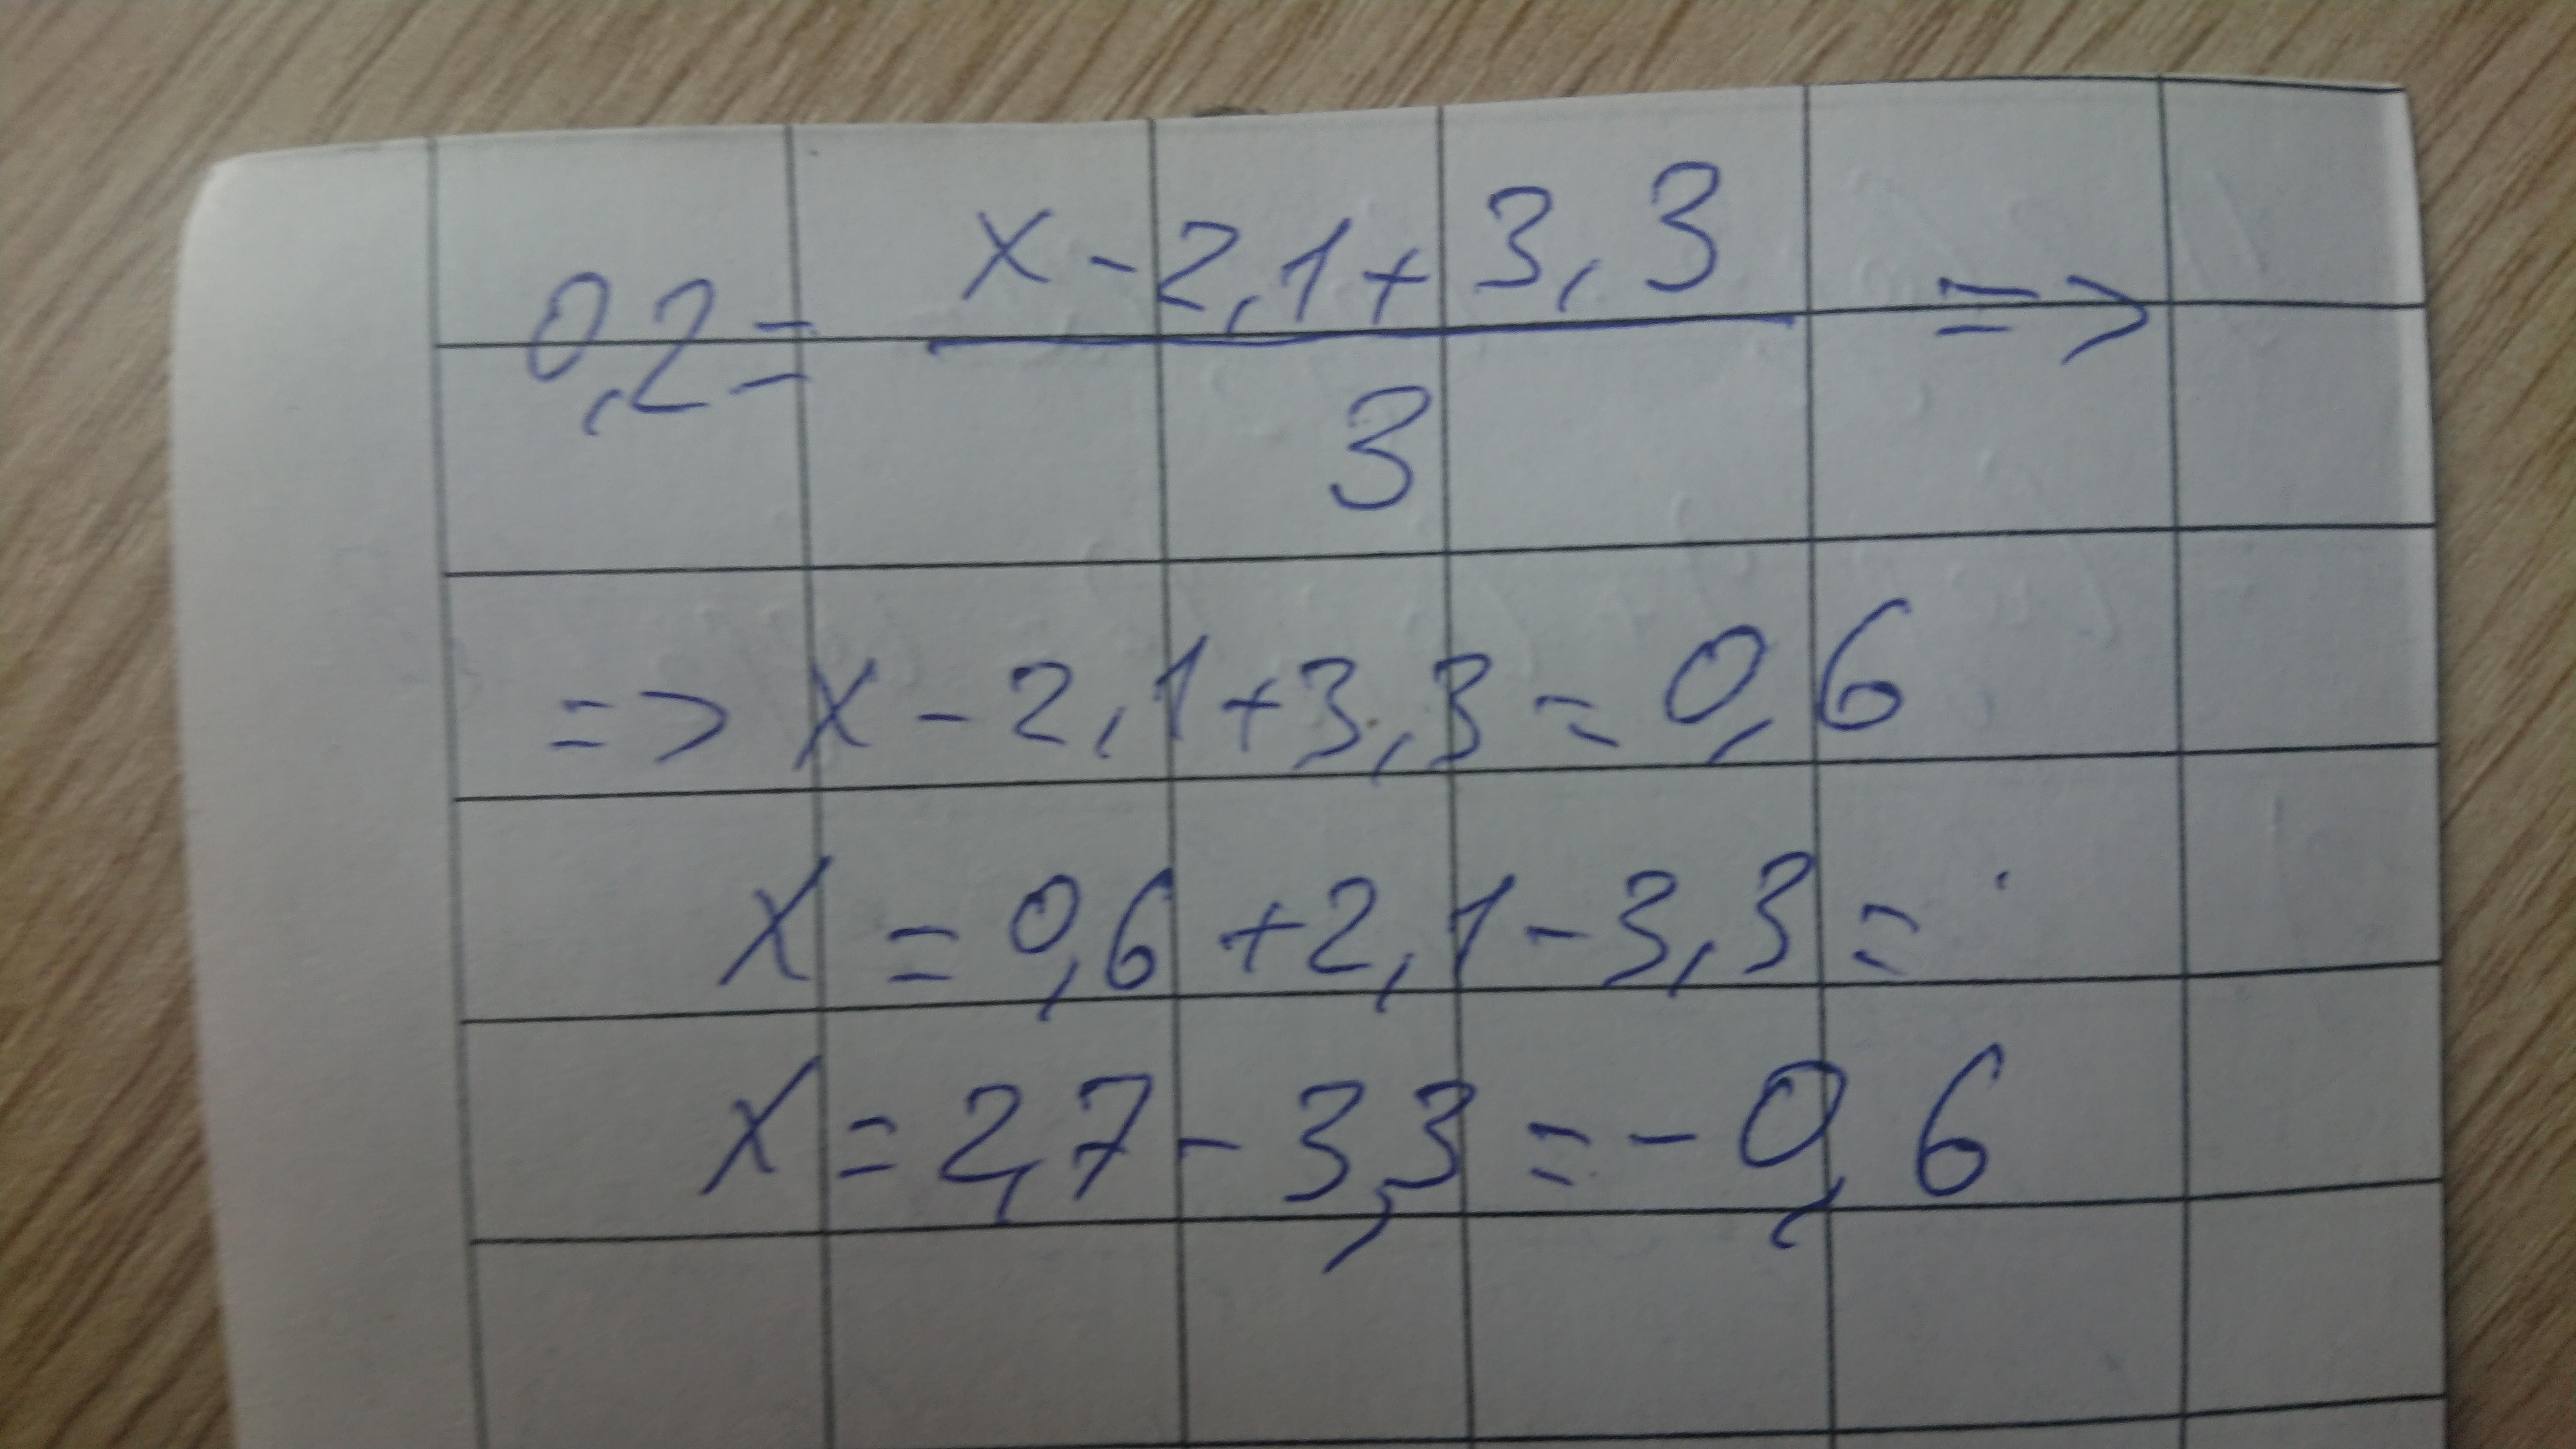 0,2 = (x - 2,1 + 3,3) / 3 =>
=> x - 2,1 + 3,3 = 0,6
x = 0,6 + 2,1 - 3,3 =
x = 2,7 - 3,3 = - 0,6